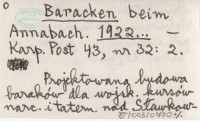 Baracken beim
Annabach. 1922... —
Karp. Post 43, nr 32: 2.
Projektowana budowa
baraków dla wojsk. kursów
narc. i tatern. nad Stawkow-